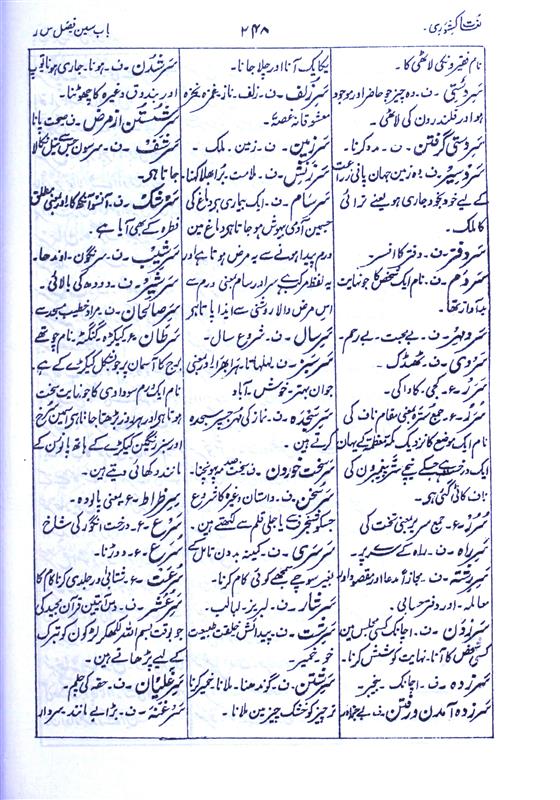 لغت کشوری۔ ۲۴۸ باب سین فصل س ر
نام فقیرونکی لاٹھی کا۔
سردستی۔ ف۔ وہ چیز جو حاضر اور موجود
ہو اور قلندرون کی لاٹھی۔
سردستی گرفتن۔ ف۔ مدد کرنا۔
سردسیر۔ ف۔ وہ زمین جہان پانی زراعت
کے لیے خود بخود جاری ہو یعنے ترائی
کا ملک۔
سردفتر۔ ف۔ دفتر کا افسر۔
سردم۔ ف۔ نام ایک شخص کا جو نہایت
بدآواز تھا۔
سردمہر۔ ف۔ بےمحبت۔ بے رحم۔
سردی۔ ف۔ ٹھنڈک۔
سرر۔ ع۔ جمع سرہ بمعنی مقام ناف کی
نام ایک موضع کا نزدیک مکہ معظمہ کے یہان
ایک درخت ہے جسکے نیچے ستر پیغمبرون کی
ناف کاٹی گئی ہی۔
سرر۔ ع۔ جمع سریر بمعنی تخت کی
سرراہ۔ ف۔ راہ کے سرے پر۔
سررشتہ۔ ف۔ مجازاً مدعا اور مقصد اور
معاملہ۔ اور دفتر حسابی۔
سرزدن۔ ف۔ اچانک کسی مجلس مین
کسی شخص کا آنا۔ نہایت کوشش کرنا۔
سرزدہ۔ ف۔ اچانک۔ بیخبر۔
سرزدہ آمدن و رفتن۔ ف۔ بےخبر اور
یکایک آنا اور چلا جانا۔
سرزلف۔ ف۔ زلف۔ ناز۔ غمزہ۔ نخرہ
معشوقانہ غصہ۔
سرزمین۔ ف۔ زمین۔ ملک۔
سرزنش۔ ف۔ ملامت۔ برا بھلا کہنا۔
سرسام۔ ف۔ ایک بیماری ہی دماغ کی
جسمین آدمی بیہوش ہو جاتا ہی دماغ مین
ورم پیدا ہونے سے یہ مرض ہوتا ہے اور
یہ لفظ مرکب ہے سر اور سام بمعنی ورم سے
اس مرض والا روشنی سے ایذا پاتا ہے
سرسال۔ ف۔ شروع سال۔
سرسبز۔ ف۔ لہلہاتا۔ ہرا بھرا اور بمعنی
جوان بھتر۔ خوش۔ آباد
سرسجدہ۔ ف۔ نماز کی مہر جسپر سجدہ
کرتے ہین۔
سرسخت خوردن۔ ف۔ سخت صدمہ پہونچنا۔
سرسخن۔ ف۔ داستان وغیرہ کا شروع
جسکو شنجرف سے یا جلی قلم سے لکھتے ہین۔
سرسری۔ ف۔ کمینہ۔ بدون تامل کے
بغیر سوچے سمجھے کوئی کام کرنا۔
سرشار۔ ف۔ لبریز۔ لبالب۔
سرشت۔ ف۔ پیدائش۔ خلقت۔ طبیعت
خو۔ خمیر۔
سرشتن۔ ف۔ گوندھنا۔ ملانا۔ خمیر کرنا
تر چیز کو خشک چیز مین ملانا۔
سرشدن۔ ف۔ ہونا۔ جاری ہونا توپ
اور بندوق وغیرہ کا چھوٹنا۔
سرشستن از مرض۔ ف۔ صحت پانا
سرشف۔ ف۔ سرسون جس سے تیل نکالا
جاتا ہی۔
سرشک۔ ف۔ آنسو آنکھ کا اور بمعنی مطلق
قطرہ کے بھی آیا ہے۔
سرشیب۔ ف۔ سرنگون۔ اوندھا۔
سرشیر۔ ف۔ دودھ کی بالائی۔
سرصالحان۔ ف۔ مراد خطیب مسجد سے
سرطان۔ ع۔ کیکڑہ۔ گنگٹہ۔ نام چوتھے
برج کا آسمان پر جو بشکل کیکڑے کے ہے۔
نام ایک ورم سوداوی کا جو نہایت سخت
ہوتا ہی اور ہر روز بڑھتا جاتا ہی اسمین سُرخ
اور سبز رگین کیکڑے کے ہاتھ پاؤن کے
مانند دکھائی دیتے ہین۔
سرطراط۔ ع۔ یعنی پالودہ۔
سرع۔ ع۔ درخت انگور کی شاخ
سرع۔ ع۔ دوڑنا۔
سرعت۔ ع۔ شتابی اور جلدی کرنا کام کا
سرعشر۔ ف۔ دس آیتین قرآن مجید کی
جو بوقت بسم اللہ لکھکر لڑکون کو تبرک
کے لیے پڑھاتے ہین۔
سرغلیان۔ ف۔ حقہ کی چلم۔
سرغنہ۔ ف۔ بڑا بے مانند سردار